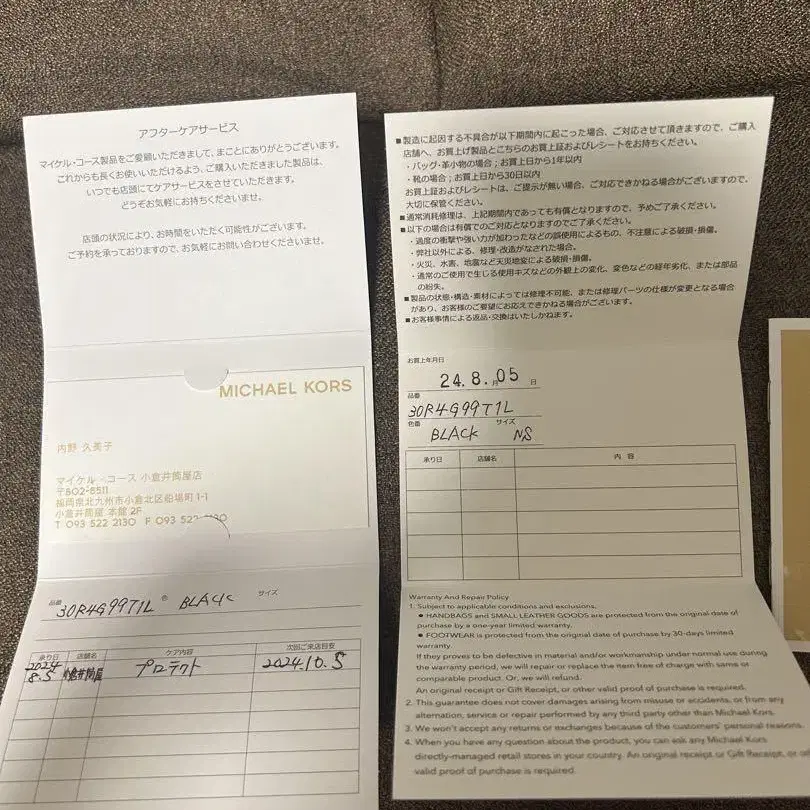 アフターケアサービス
マイケル・コース製品をご愛顧いただきまして、まことにありがとうございます。
これからも長くお使いいただけるよう、ご購入いただきました製品は、
いつでも店頭にてケアサービスをさせていただきます。
どうぞお気軽にお持ちくださいませ。
店頭の状況により、お時間をいただく可能性がございます。
ご予約を承っておりますので、お気軽にお問い合わせくださいませ。
MICHAEL KORS
内野 久美子
マイケル・コース 小倉井筒屋店
〒802-8511
福岡県北九州市小倉北区船場町 1-1
小倉井筒屋 本館 2F
T 093 522 2130 F 093 522
品番 30R4G99T1L 色 BLACK サイズ
承り日 店舗名 ケア内容 次回ご来店目安
2024 8.5 小倉井筒屋 プロテクト 2024.10.5
■製造に起因する不具合が以下期間内に起こった場合、ご対応させて頂きますので、ご購入
店舗へ、お買上げ製品とこちらのお買上証およびレシートをお持ちください。
・バッグ・革小物の場合；お買上日から1年以内
・靴の場合；お買上日から30日以内
お買上証およびレシートは、ご提示が無い場合、ご対応できかねる場合がございますので、
大切に保管ください。
■通常消耗修理は、上記期間内であっても有償となりますので、予めご了承ください。
■以下の場合は有償でのご対応となりますのでご了承ください。
・過度の衝撃や強い力が加わったなどの誤使用によるもの、不注意による破損・損傷。
・弊社以外による、修理・改造がなされた場合。
・火災、水害、地震など天災地変による破損・損傷。
・通常のご使用で生じる使用キズなどの外観上の変化、変色などの経年劣化、または部品
の紛失。
■製品の状態・構造・素材によっては修理不可能、または修理パーツの仕様が変更となる場合
があり、お客様のご要望にお応えできかねる場合がございます。
■お客様事情による返品・交換はいたしかねます。
お買上年月日
24. 8. 月 05 日
品番
30R4G99T1L
色番 サイズ
BLACK NS
承り日 店舗名 内 容
Warranty And Repair Policy
1. Subject to applicable conditions and exclusions,
● HANDBAGS and SMALL LEATHER GOODS are protected from the original date of
purchase by a one-year limited warranty.
● FOOTWEAR is protected from the original date of purchase by 30-days limited
warranty.
If they proves to be defective in material and/or workmanship under normal use during
the warranty period, we will repair or replace the item free of charge with same or
comparable product. Or, we will refund.
An original receipt or Gift Receipt, or other valid proof of purchase is required.
2. This guarantee does not cover damages arising from misuse or accidents, or from any
alternation, service or repair performed by any third party other than Michael Kors.
3. We won't accept any returns or exchanges because of the customers' personal reasons.
4. When you have any question about the product, you can ask any Michael Kors
directly-managed retail stores in your country. An original receipt or Gift Receipt, or
valid proof of purchase is required.